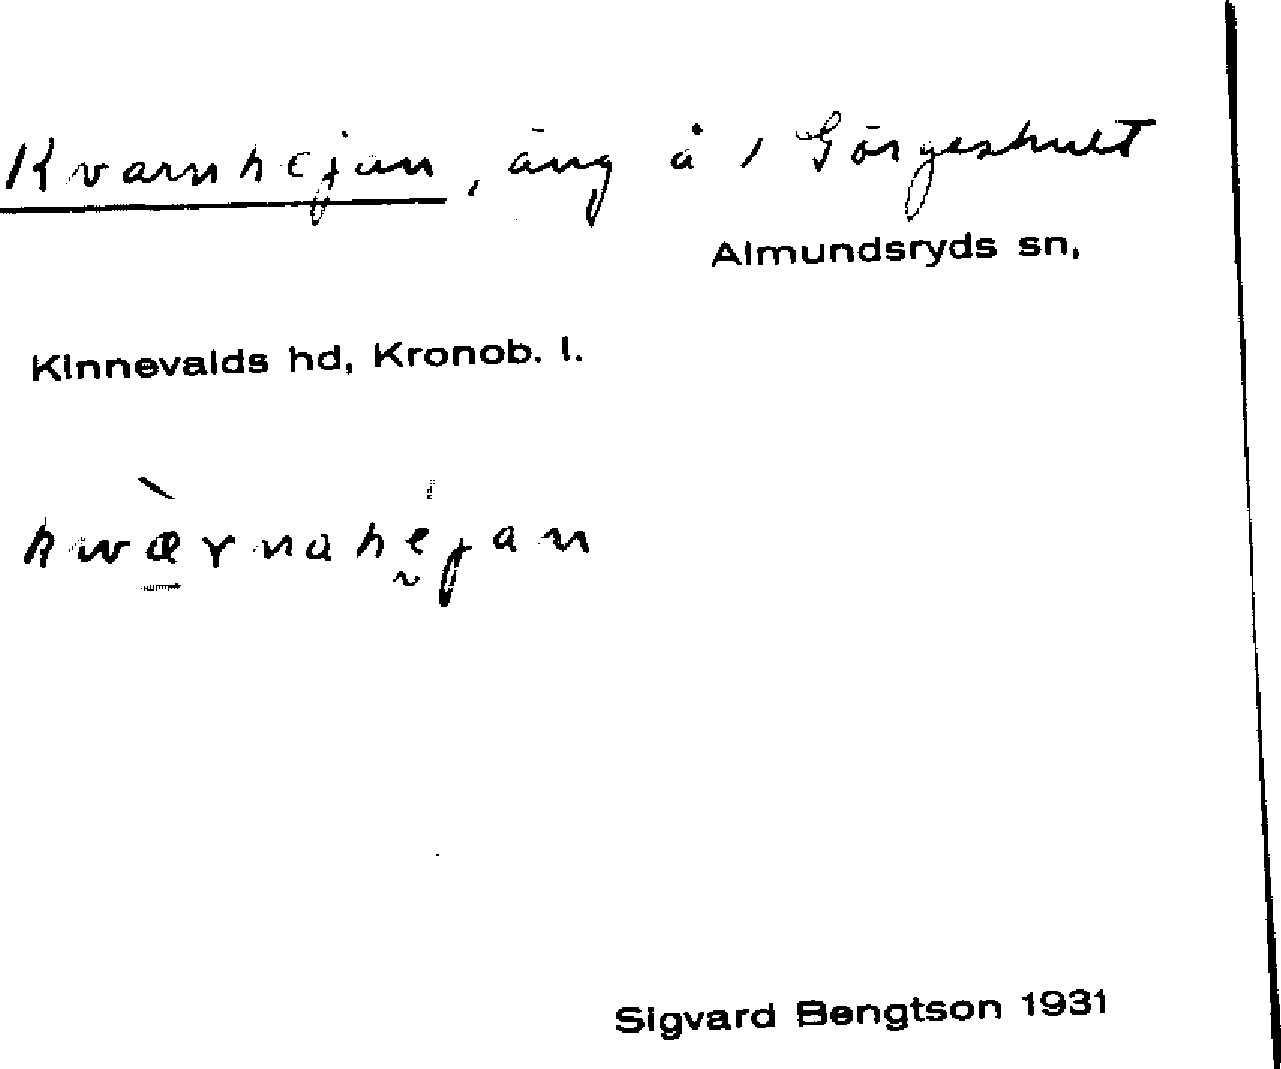 Kvarnhejan, äng å 1 Görgeshult
Almundsryds sn,
Kinnevalds hd, Kronob. l.
kwæ̀rnahejan
Sigvard Bengtson 1931